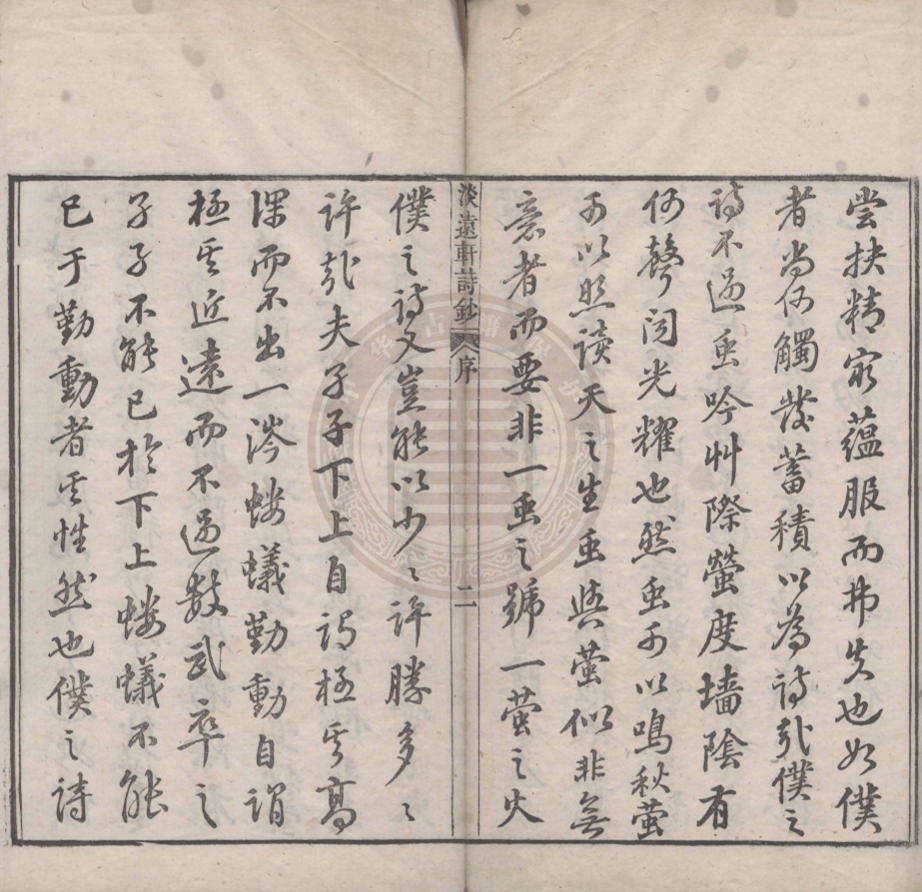 尝抉精窮蘊服而弗失也如僕
者尚何觸發蓄積以為詩哉僕之
詩不過虫吟艸際螢度墻陰有
何聲闻光耀也然虫可以鳴秋螢
可以照读天之生虫與螢似非無
意者而要非一虫之號一螢之火
淡遠軒詩鈔 序 二
僕之詩文豈能以少〻許勝多〻
許哉夫孑孑下上自謂極其高
深而不出一涔蝼蟻勤動自謂
極其近遠而不過数武卒之
孑孑不能已於下上蝼蟻不能
已于勤動者其性然也僕之詩